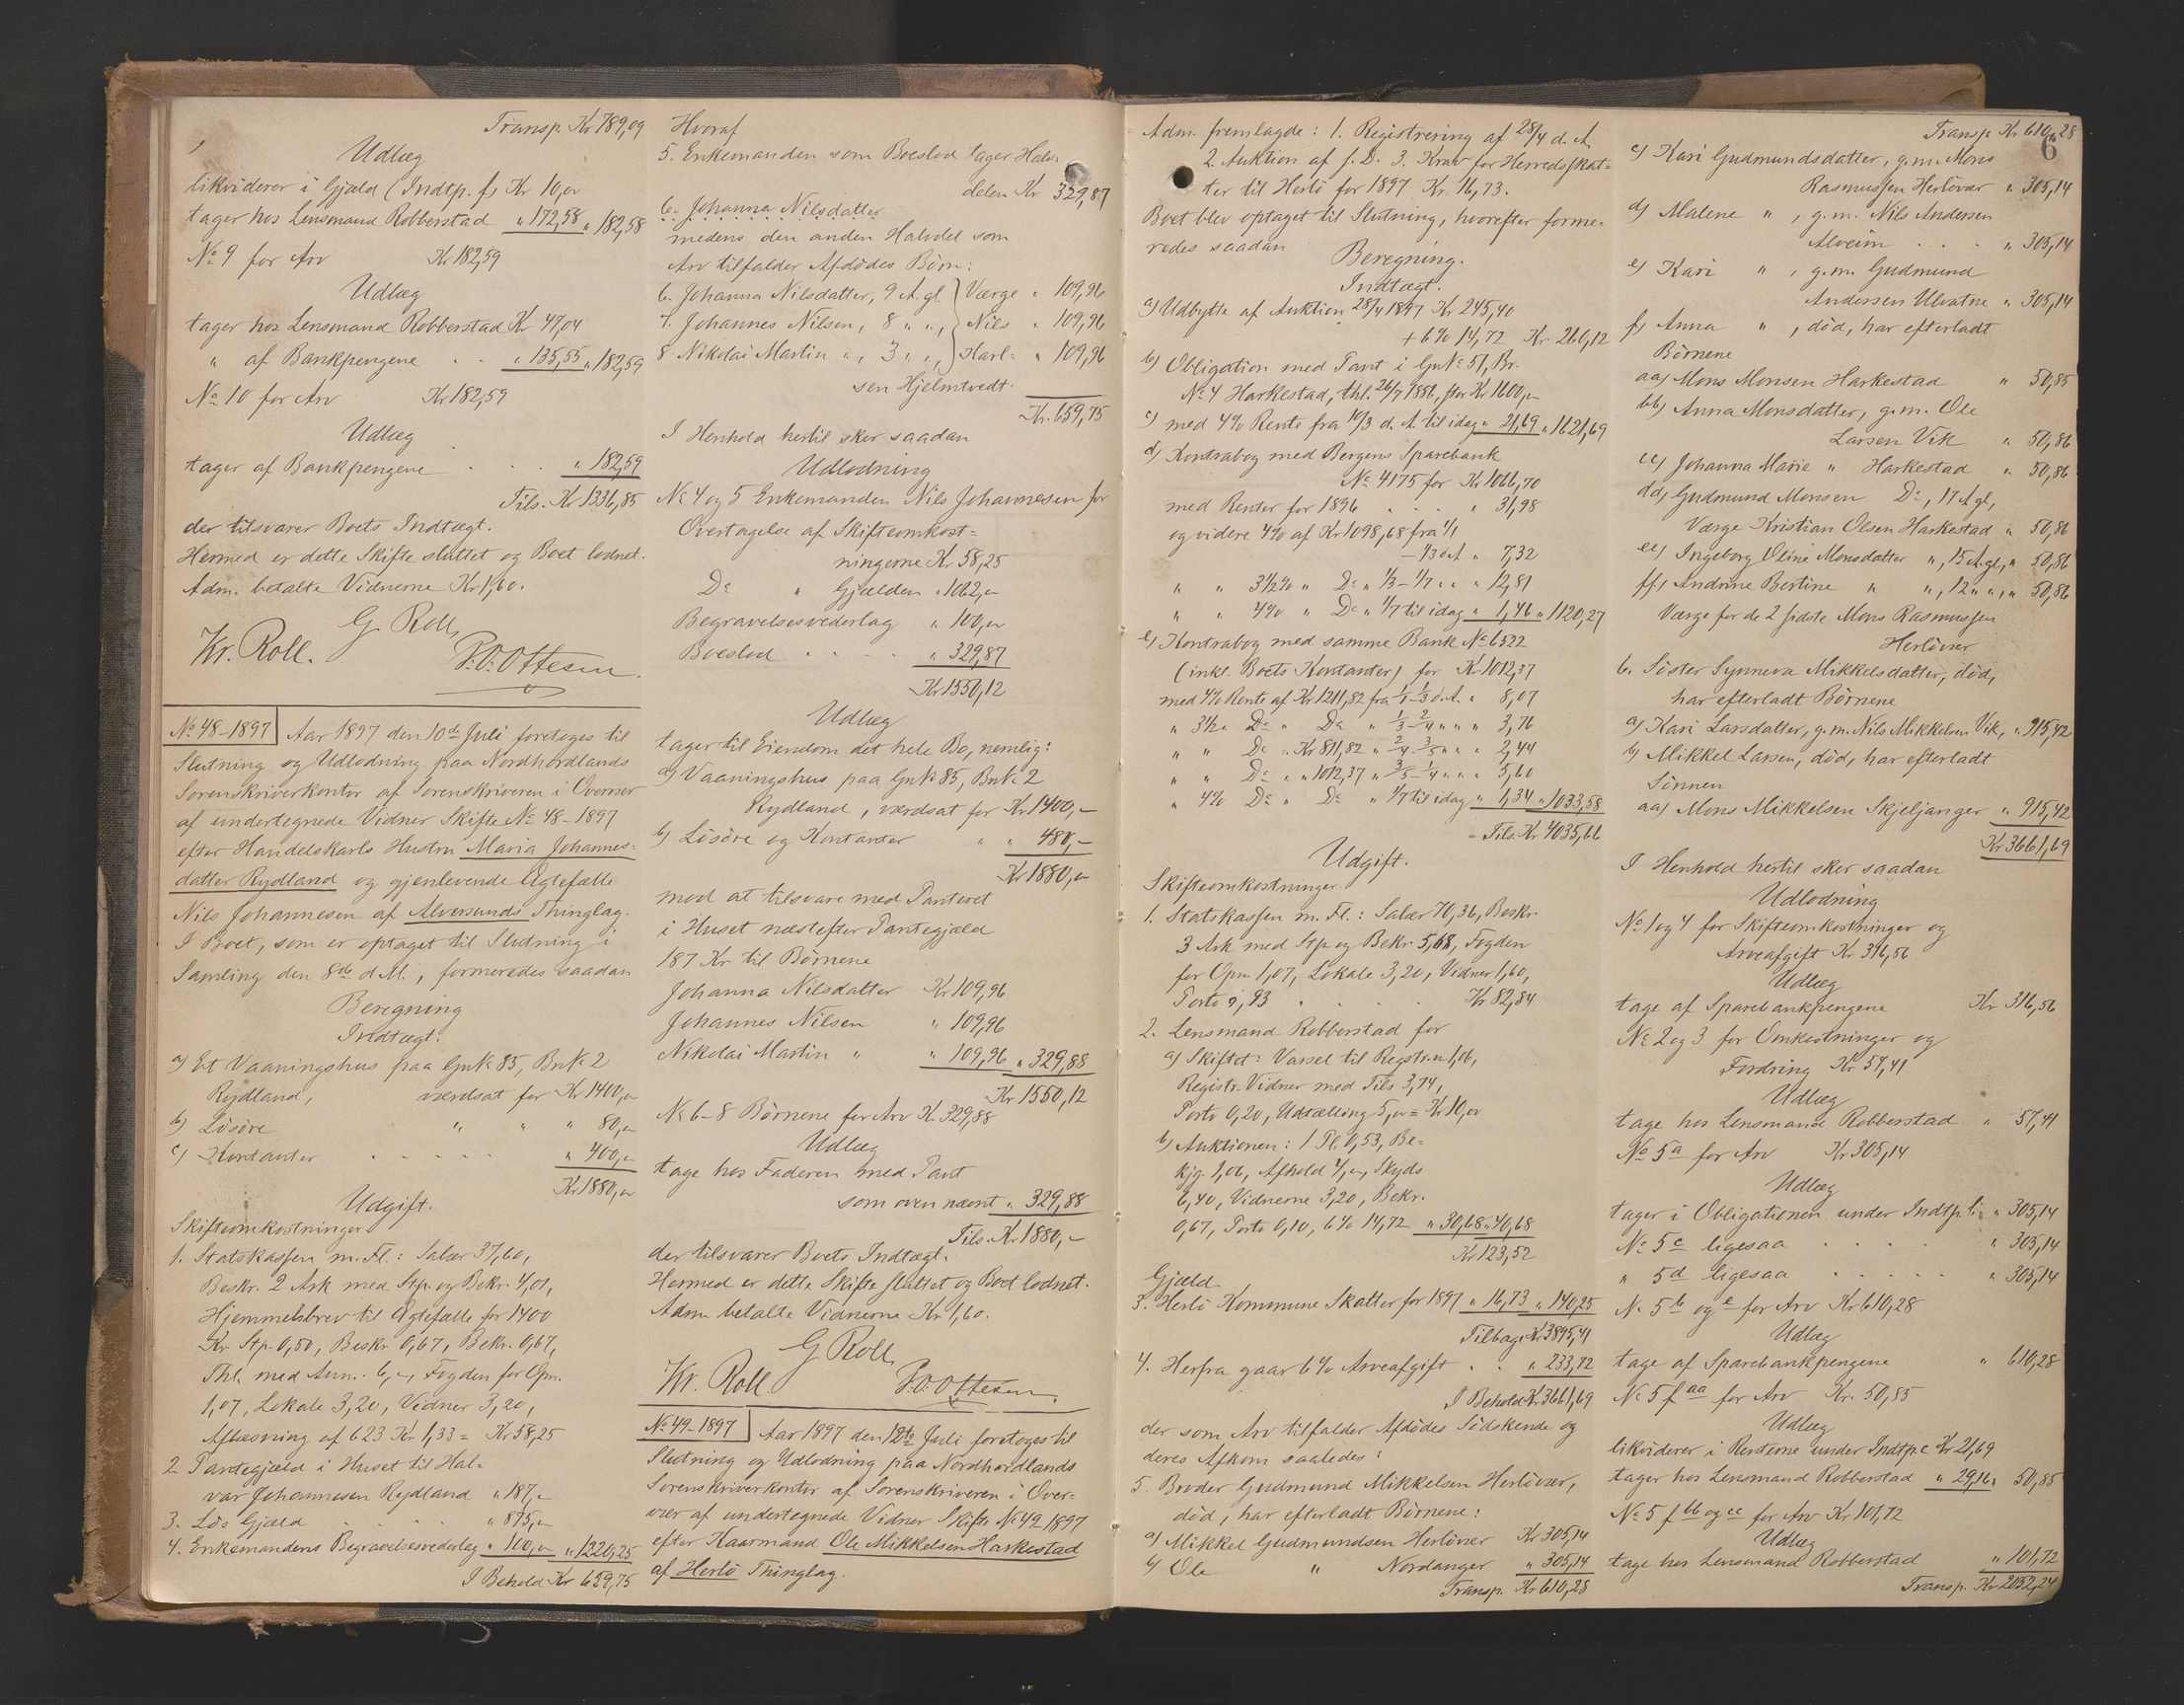 Transp. Kr 789,09
Udlæg
likviderer i Gjæld (Indtp. f) Kr 10,00
tager hos Lensmand Robberstad " 172,58 " 182,58
No 9 for Arv Kr 182,59
Udlæg
tager hos Lensmand Robberstad Kr 47,04
" af Bankpengene . . " 135,55 " 182,59
No 10 for Arv Kr 182,59
Udlæg
tager af Bankpengene . . . " 182,59
Tils. Kr 1336,85
der tilsvarer Boets Indtægt.
Hermed er dette Skifte sluttet og Boet lodnet.
Adm. betalte Vidnerne Kr 1,60.
G Roll,
Kr. Roll. P. O. Ottesen.
No 48-1897 Aar 1897 den 10de Juli foretoges til
Slutning og Udlodning paa Nordhordlands
Sorenskriverkontor af Sorenskriveren i Overvær
af undertegnede Vidner Skifte No 48-1897
efter Handelskarls Hustru Maria Johannes-
datter Rydland og gjenlevende Ægtefælle
Nils Johannesen af Alversunds Thinglag.
I Boet, som er optaget til Slutning i
Samling den 8de d. M., formeredes saadan
Beregning
Indtægt.
a) Et Vaaningshus paa Gn No 85, Bn No 2
Rydland, værdsat for Kr 1400,00
b) Løsøre " " " 80,00
c) Kontanter . . . . . " 400,00
Kr 1880,00
Udgift.
Skifteomkostninger
1. Statskassen m. Fl.: Salær 37,60,
Beskr. 2 Ark med Stp. og Bekr. 4,01,
Hjemmelsbrev til Ægtefælle for 1400
Kr Stp. 0,50, Beskr 0,67, Bekr. 0,67,
Thl. med Ann. 6,-, Fogden for Opn.
1,07, Lokale 3,20, Vidner 3,20,
Aflæsning af 623 Kr 1,33 = Kr 58,25
2. Pantegjæld i Huset til Hal-
var Johannesen Rydland " 187,-
3. Løs Gjæld . . . . " 875,-
4. Enkemandens Begravelsesvederlag " 100,00 " 1220,25
I Behold Kr 659,75
Hvoraf
5. Enkemanden som Boeslod tager Halv-
delen Kr 329,87
6. Johanna Nilsdatter
medens den anden Halvdel som
Arv tilfalder Afdødes Børn:
6. Johanna Nilsdatter, 9 A. gl. } Værge " 109,96
7. Johannes Nilsen, 8 " " , } Nils " 109,96
8. Nikolai Martin " , 3 " " , } Karl- " 109,96
sen Hjelmtvedt.
Kr. 659,75
I Henhold hertil sker saadan
Udlodning
No 4 og 5 Enkemanden Nils Johannesen for
Overtagelse af Skifteomkost-
ningerne Kr 58,25
Do " Gjælden " 1062,00
Begravelsesvederlag " 100,00
Boeslod . . . . " 329,87
Kr 1550,12
Udlæg
tager til Eiendom det hele Bo, nemlig:
a) Vaaningshus paa Gn No 85, Bn No 2
Rydland, værdsat for Kr 1400,-
b) Løsøre og Kontanter " " 480,-
Kr 1880,00
mod at tilsvare med Panteret
i Huset næstefter Pantegjæld
187 Kr til Børnene
Johanna Nilsdatter Kr 109,96
Johannes Nilsen " 109,96
Nikolai Martin " " 109,96 " 329,88
Kr 1550,12
No 6-8 Børnene for Arv Kr 329,88
Udlæg
tage hos Faderen med Pant
som oven nævnt " 329,88
Tils. Kr 1880,-
der tilsvarer Boets Indtægt.
Hermed er dette Skifte sluttet og Boet lodnet.
Adm. betalte Vidnerne Kr 1,60.
G Roll,
Kr. Roll P. O. Ottesen
No 49-1897 Aar 1897 den 12te Juli foretoges til
Slutning og Udlodning paa Nordhordlands
Sorenskriverkontor af Sorenskriveren i Over-
vær af undertegnede Vidner Skifte No 49 1897
efter Kaarmand Ole Mikkelsen Harkestad
af Herlø Thinglag.
6
Adm. fremlagde: 1. Registrering af 28/4 d. A,
2. Auktion af s. D. 3. Krav for Herredsskat-
ter til Herlø for 1897 Kr. 16,73.
Boet blev optaget til Slutning, hvorefter forme-
redes saadan
Beregning.
Indtægt.
a) Udbytte af Auktion 28/4 1897 Kr 245,40
+ 6% 14,72 Kr 260,12
b) Obligation med Pant i Gn No 51, Br.
No 4 Harkestad, thl. 26/7 1886, stor Kr 1600,00
c) med 4% Rente fra 10/3 d. A. til idag " 21,69 " 1621,69
d) Kontrabog med Bergens Sparebank
No 4175 for Kr 1066,70
med Renter for 1896 . . . . " 31,98
og videre 4% af Kr 1098,68 fra 1/1
- 1/3 d A " 7,32
" " 3 1/2 % " Do " 1/3 - 1/7 " " " 12,81
" " 4% " Do " 1/7 til idag " 1,46 " 1120,27
e) Kontrabog med samme Bank No 6522
(inkl. Boets Kontanter) for Kr 1012,37
med 4% Rente af Kr 1211,82 fra 1/1 - 1/3 d. A. " 8,07
" 3 1/2 " Do " Do " 1/3 - 2/4 " " " 3,76
" " Do " Kr 811,82 " 2/4 - 3/5 " " " 2,44
" " Do " " 1012,37 " 3/5 - 1/7 " " " 5,60
" 4% Do " Do " 1/7 til idag " 1,34 " 1033,58
Tils. Kr 4035,66
Udgift.
Skifteomkostninger.
1. Statskassen m. Fl.: Salær 70,36, Beskr.
3 Ark med Stp og Bekr. 5,68, Fogden
for Opn. 1,07, Lokale 3,20, Vidner 1,60,
Porto 0,93 . . . . . Kr 82,84
2. Lensmand Robberstad for
a) Skiftet: Varsel til Registr. 1,06,
Registr. Vidner med Tils 3,74,
Porto 0,20, Udtælling 5,00 = Kr 10,00
b) Auktionen: 1 Pl. 0,53, Be-
kjg. 1,06, Afhold 4,00, Skyds
6,40, Vidnerne 3,20, Bekr.
0,67, Porto 0,10, 6% 14,72 " 30,68 " 40,68
Kr 123,52
Gjæld.
3. Herlø Kommune Skatter for 1897 " 16,73 " 140,25
Tilbage Kr 3895,41
4. Herfra gaar 6% Arveafgift . . " 233,72
I Behold Kr 3661,69
der som Arv tilfalder Afdødes Sødskende og
deres Afkom saaledes:
5. Broder Gudmund Mikkelsen Herløvær,
død, har efterladt Børnene:
a) Mikkel Gudmundsen Herløvær Kr 305,14
b) Ole " Nordanger " 305,14
Transp. Kr 610,28
Transp. Kr 610,28
c) Kari Gudmundsdatter, g. m. Mons
Rasmussen Herløvær " 305,14
d) Malene " , g. m. Nils Andersen
Alveim . . . " 305,14
e) Kari " , g. m. Gudmund
Andersen Ulvatne " 305,14
f) Anna " , død, har efterladt
Børnene
aa) Mons Monsen Harkestad " 50,85
bb) Anna Monsdatter, g. m. Ole
Larsen Vik " 50,86
cc) Johanna Marie " Harkestad " 50,86
dd) Gudmund Monsen Do, 17 A gl,
Værge Kristian Olsen Harkestad " 50,86
ee) Ingeborg Oline Monsdatter " , 15 A. gl, " 50,86
ff) Andrine Bertine " " , 12 " " , " 50,86
Værge for de 2 sidste Mons Rasmussen
Herløvær
6. Søster Synneva Mikkelsdatter, død,
har efterladt Børnene
a) Kari Larsdatter, g. m. Nils Mikkelsen Vik, " 915,42
b) Mikkel Larsen, død, har efterladt
Sønnen
aa) Mons Mikkelsen Skjeljanger " 915,42
Kr 3661,69
I Henhold hertil sker saadan
Udlodning
No 1 og 4 for Skifteomkostninger og
Arveafgift Kr 316,56
Udlæg
tage af Sparebankpengene Kr 316,56
No 2 og 3 for Omkostninger og
Fordring Kr 57,41
Udlæg
tage hos Lensmand Robberstad " 57,41
No 5a for Arv Kr 305,14
Udlæg
tager i Obligationen under Indtp. b " 305,14
No 5c ligesaa . . . . " 305,14
" 5d ligesaa . . . . . " 305,14
No 5b og e for Arv Kr 610,28
Udlæg
tage af Sparebankpengene " 610,28
No 5 f aa for Arv Kr. 50,85
Udlæg
likviderer i Renterne under Indtp. c Kr 21,69
tager hos Lensmand Robberstad " 29,16 " 50,85
No 5 f bb og cc for Arv Kr 101,72
Udlæg
tage hos Lensmand Robberstad " 101,72
Transp. Kr 2052,24